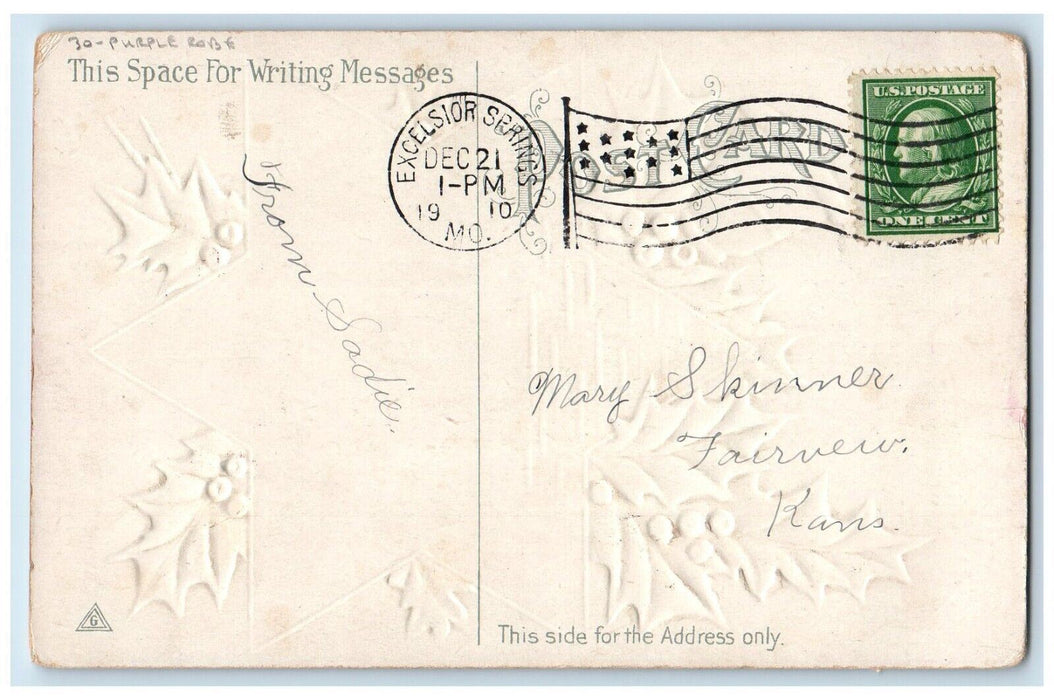 30-PURPLE ROBE
This Space For Writing Messages
POST CARD
EXCELSIOR SPRINGS
DEC 21
1-PM
19 10
MO.
U.S. POSTAGE
ONE CENT
From Sadie.
Mary Skinner.
Fairview.
Kans.
G
This side for the Address only.